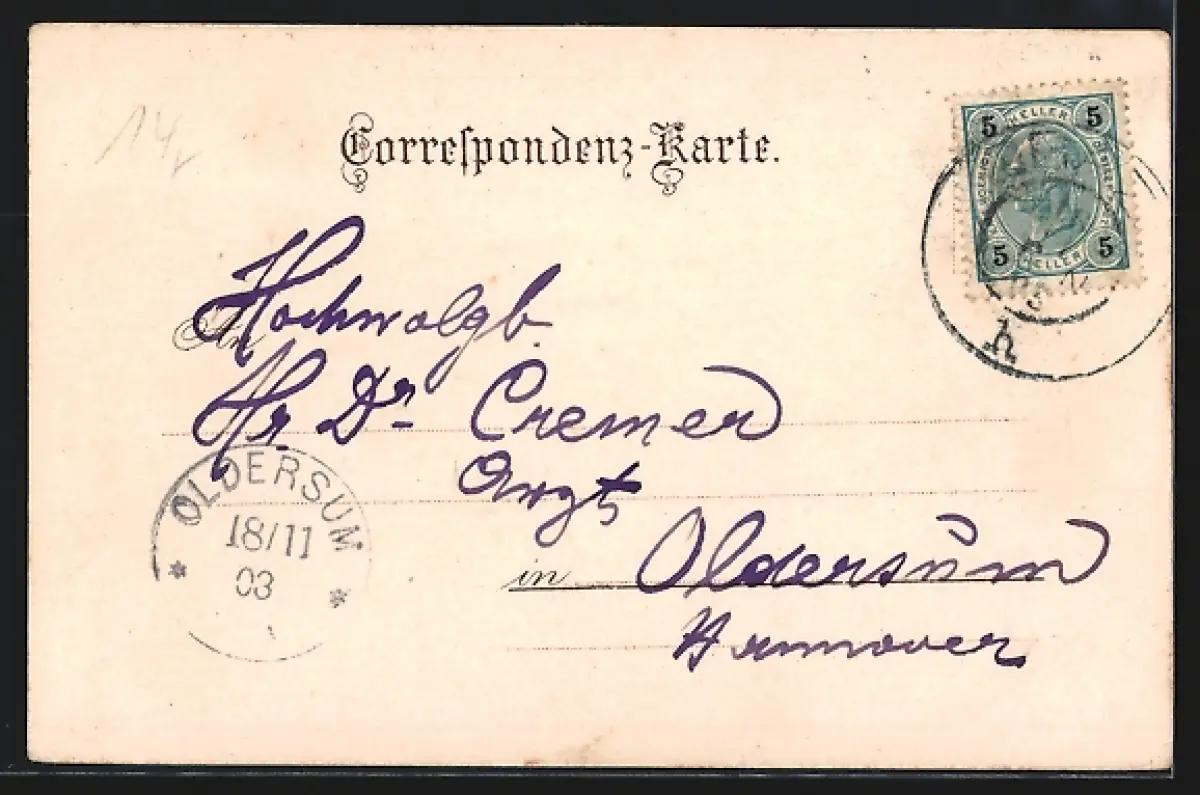 14
Correſpondenz-Karte.
5 HELLER 5
5 HELLER 5
h
An
Hochwolgb.
Hr. Dr. Cremer
Arzt
in Oldersum
Hannover
OLDERSUM
18/11
03
* *